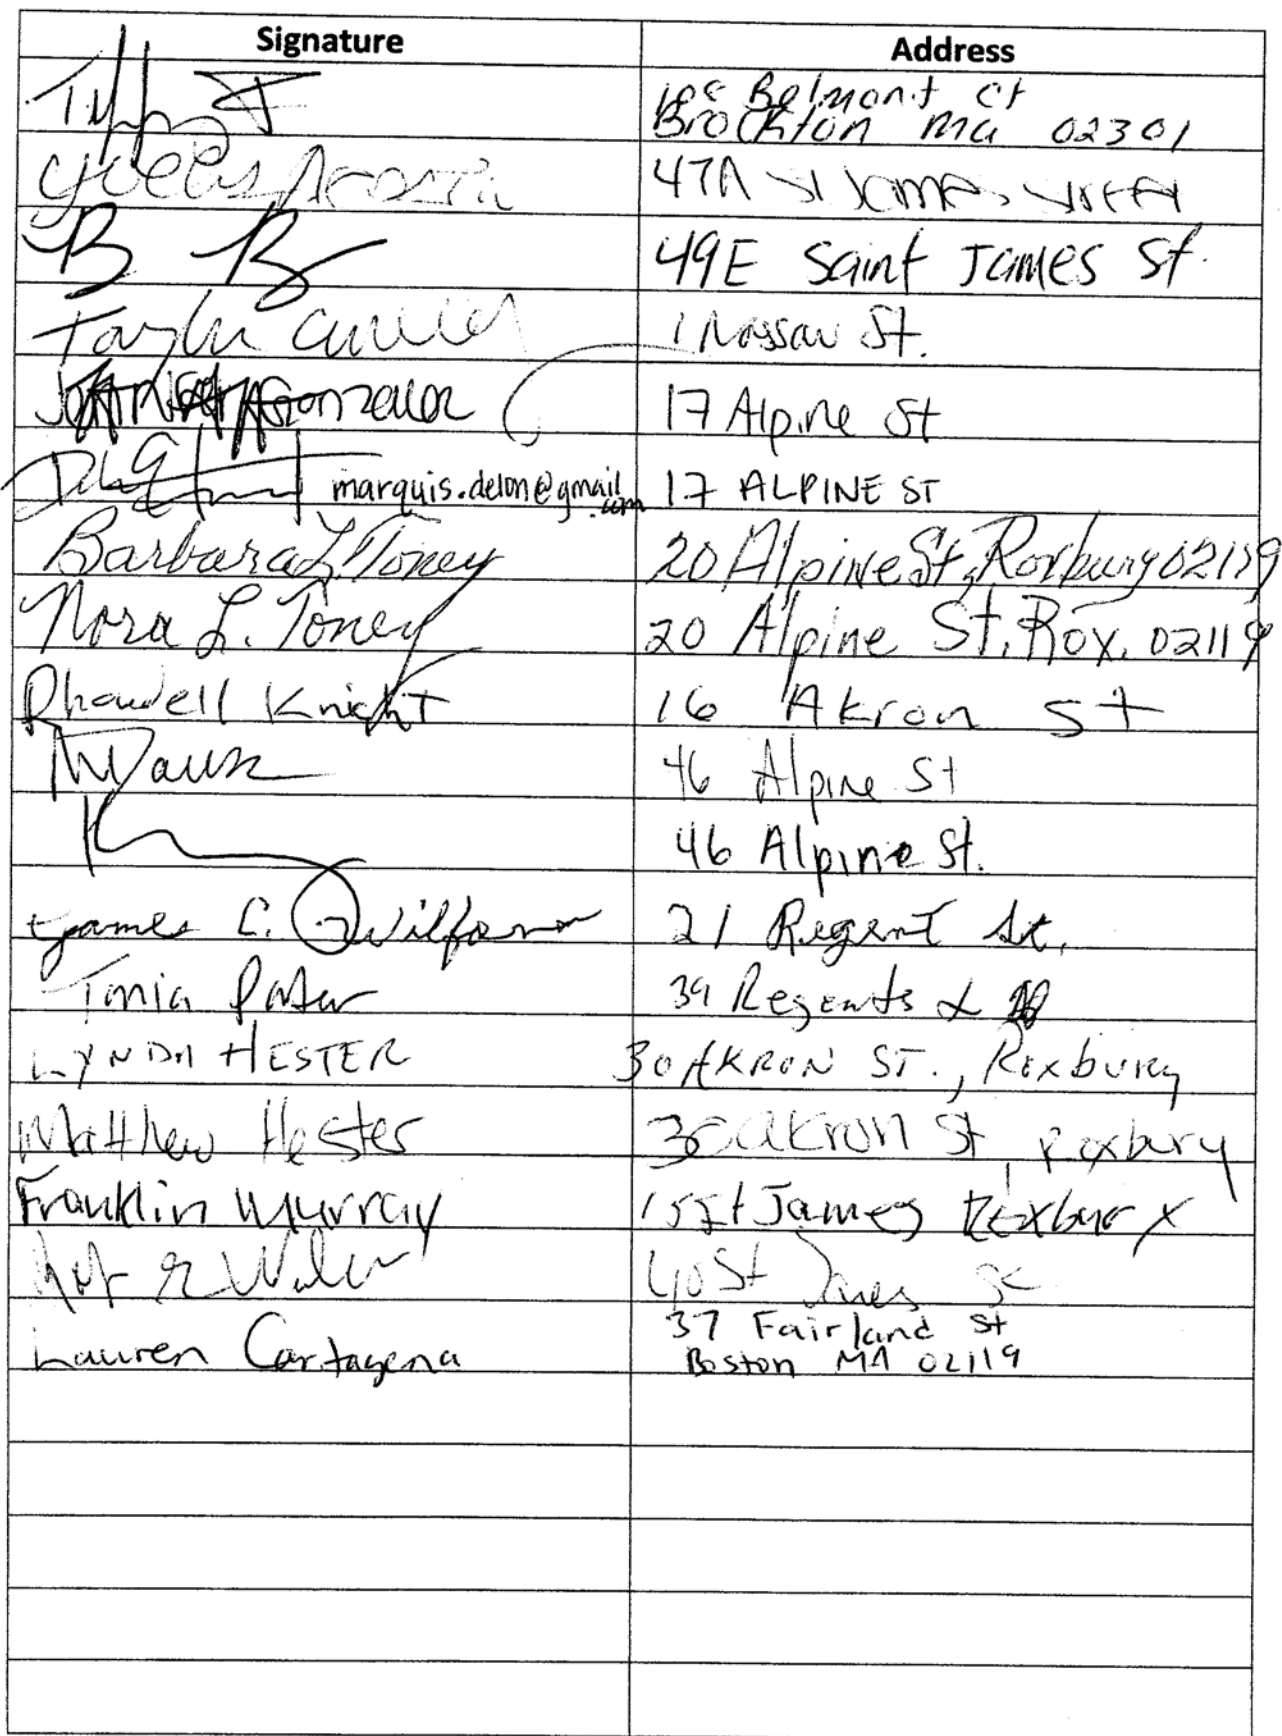 Signature Address
Belmont ct
Brockton Ma 02301
47A St James Street
49E Saint James St.
Taylor 1 Nassau St.
Gonzalez 17 Alpine St
marquis.delon@gmail.com 17 ALPINE ST
Barbara L. Toney 20 Alpine St, Roxbury 02119
Nora L. Toney 20 Alpine St. Rox. 02119
Rhowdell Knight 16 Akron St
46 Alpine St
46 Alpine St.
James C. Wilfong 21 Regent St.
Tonia 39 Regents
LYNDA HESTER 30 AKRON ST., Roxbury
Matthew Hester 30 akron St, Roxbury
Franklin Murray 15 St James
40 St James St
37 Fairland St
Lauren Cartagena Boston MA 02119